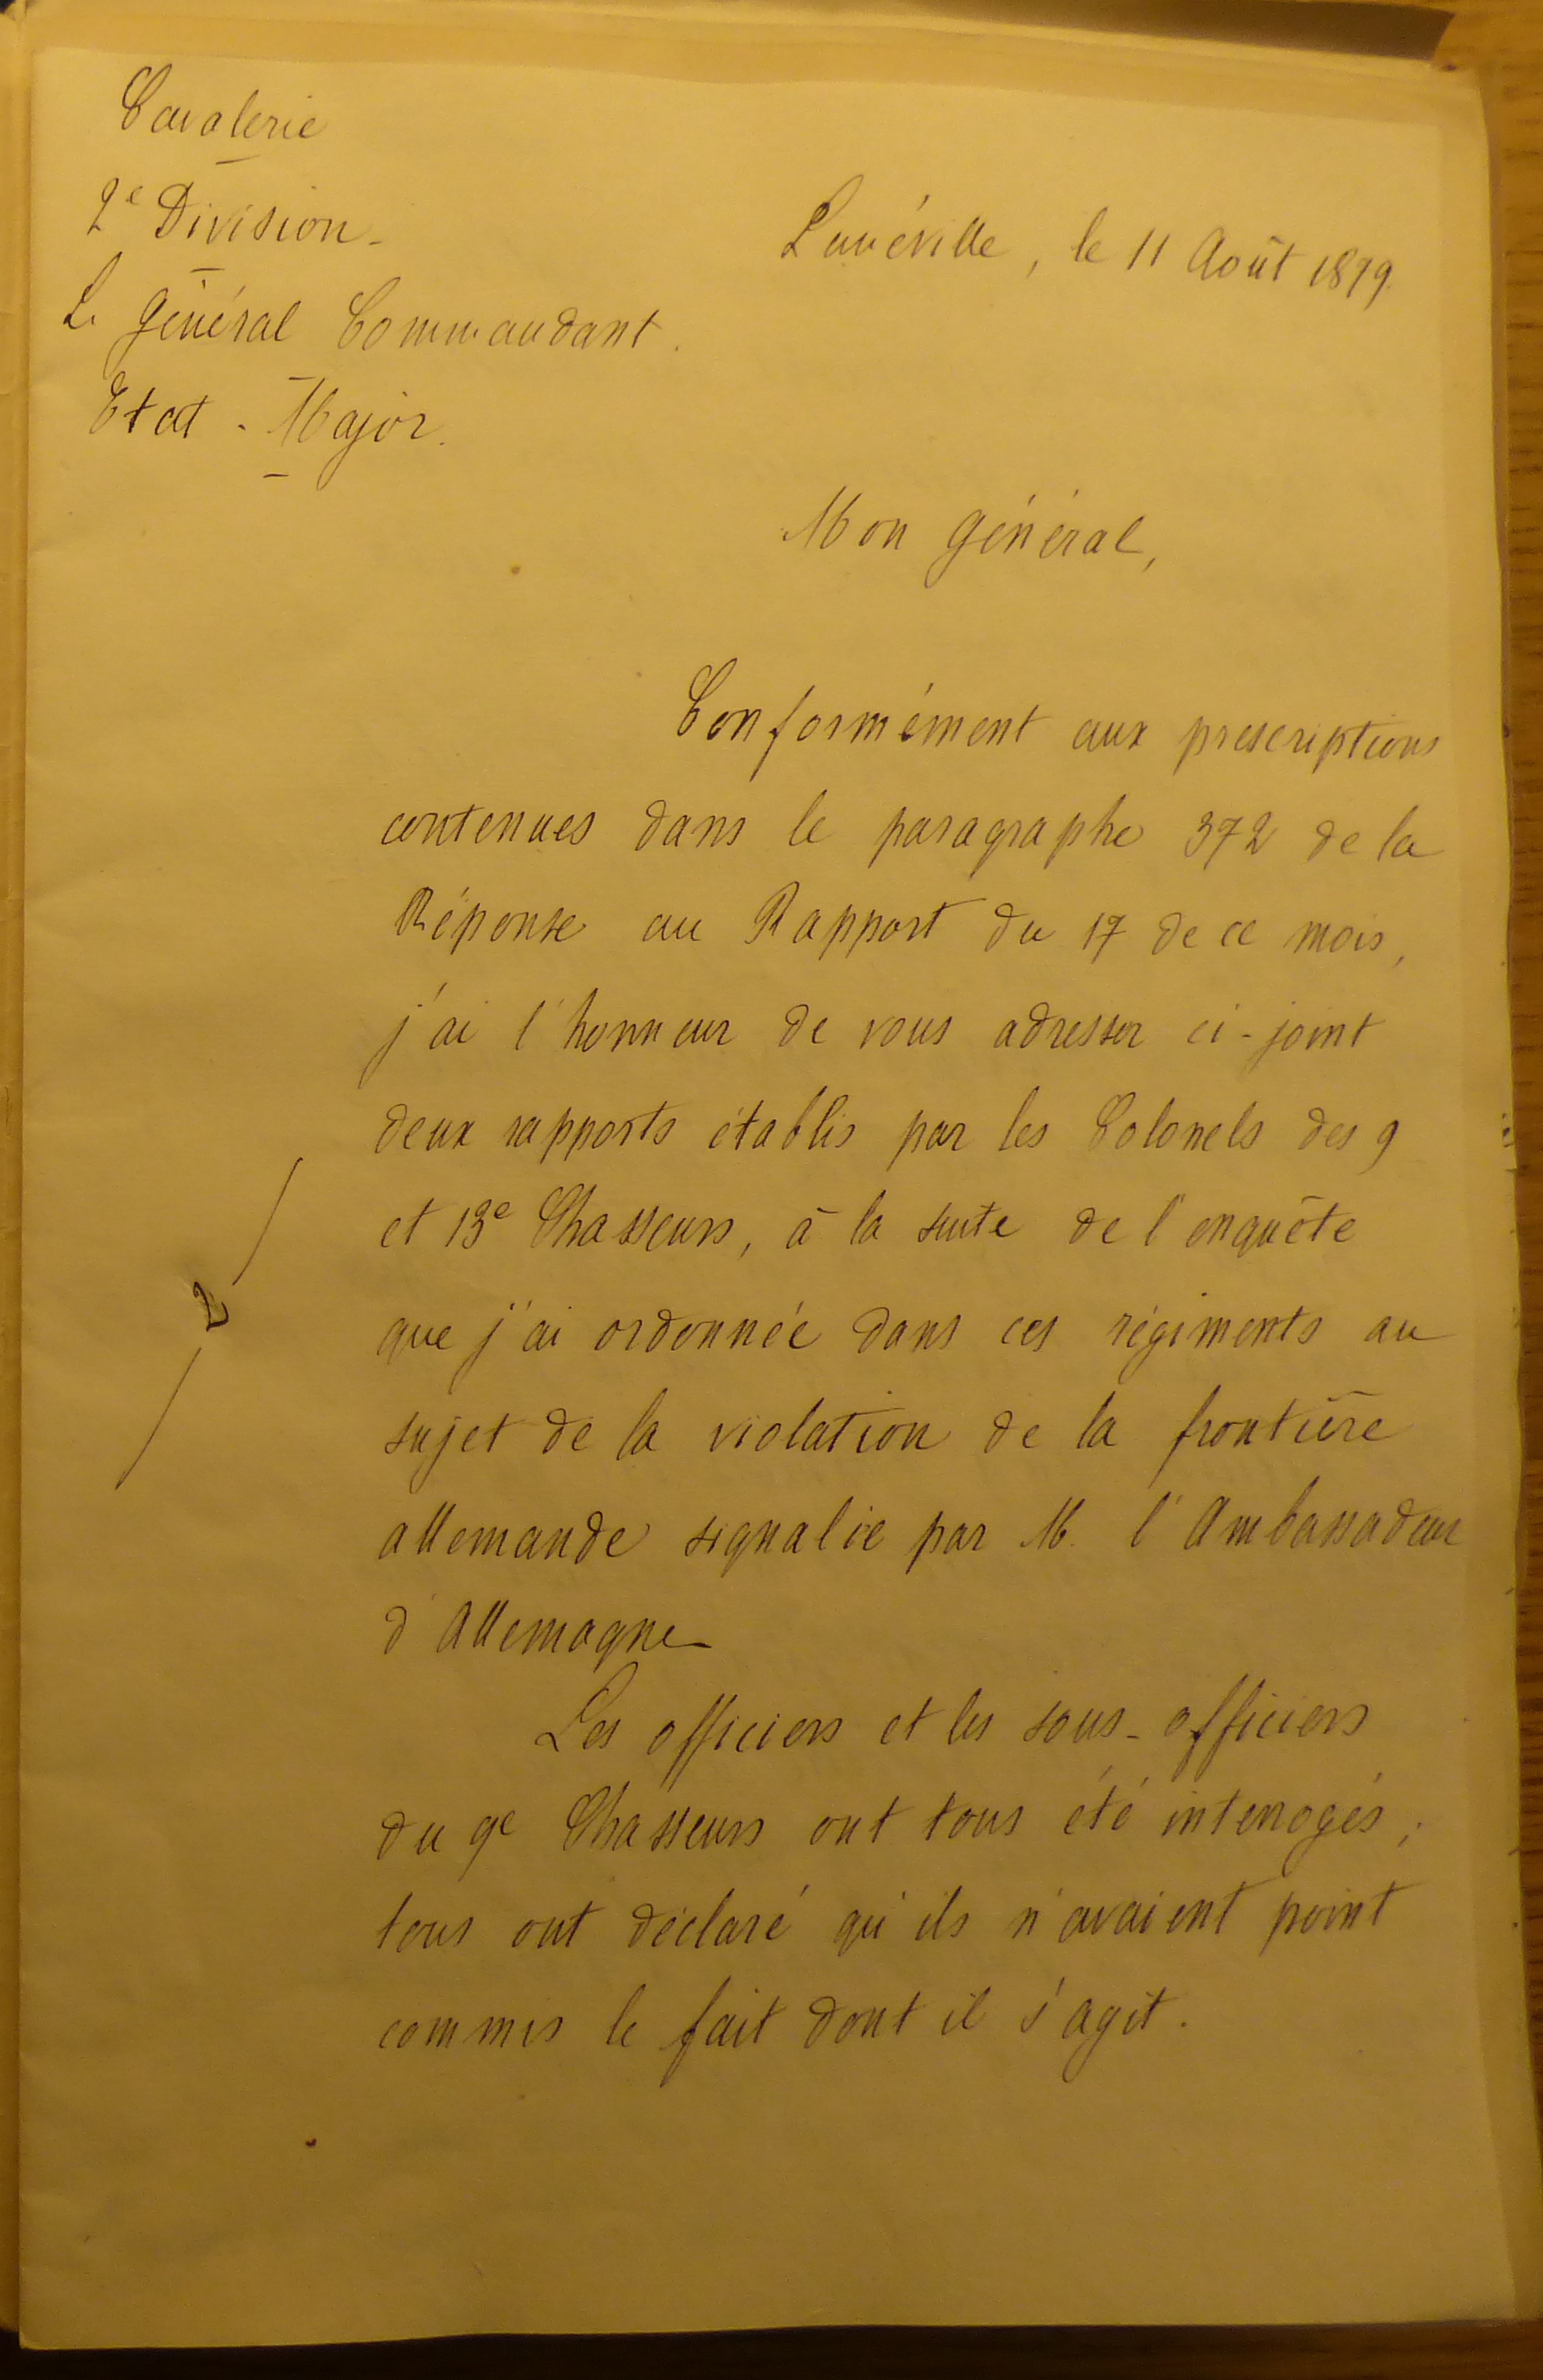 Cavalerie
2e Division
Le Général Commandant.
Etat-Major.
Lunéville, le 11 Août 1879.
Mon Général,
Conformément aux prescriptions
contenues dans le paragraphe 372 de la
Réponse au Rapport du 17 de ce mois,
j'ai l'honneur de vous adresser ci-joint
deux rapports établis par les Colonels des 9
et 13e Chasseurs, à la suite de l'enquête
2
que j'ai ordonnée dans ces régiments au
sujet de la violation de la frontière
allemande signalée par M. l'Ambassadeur
d'Allemagne
Les officiers et les sous-officiers
du 9e Chasseurs ont tous été interrogés;
tous ont déclaré qu'ils n'avaient point
commis le fait dont il s'agit.